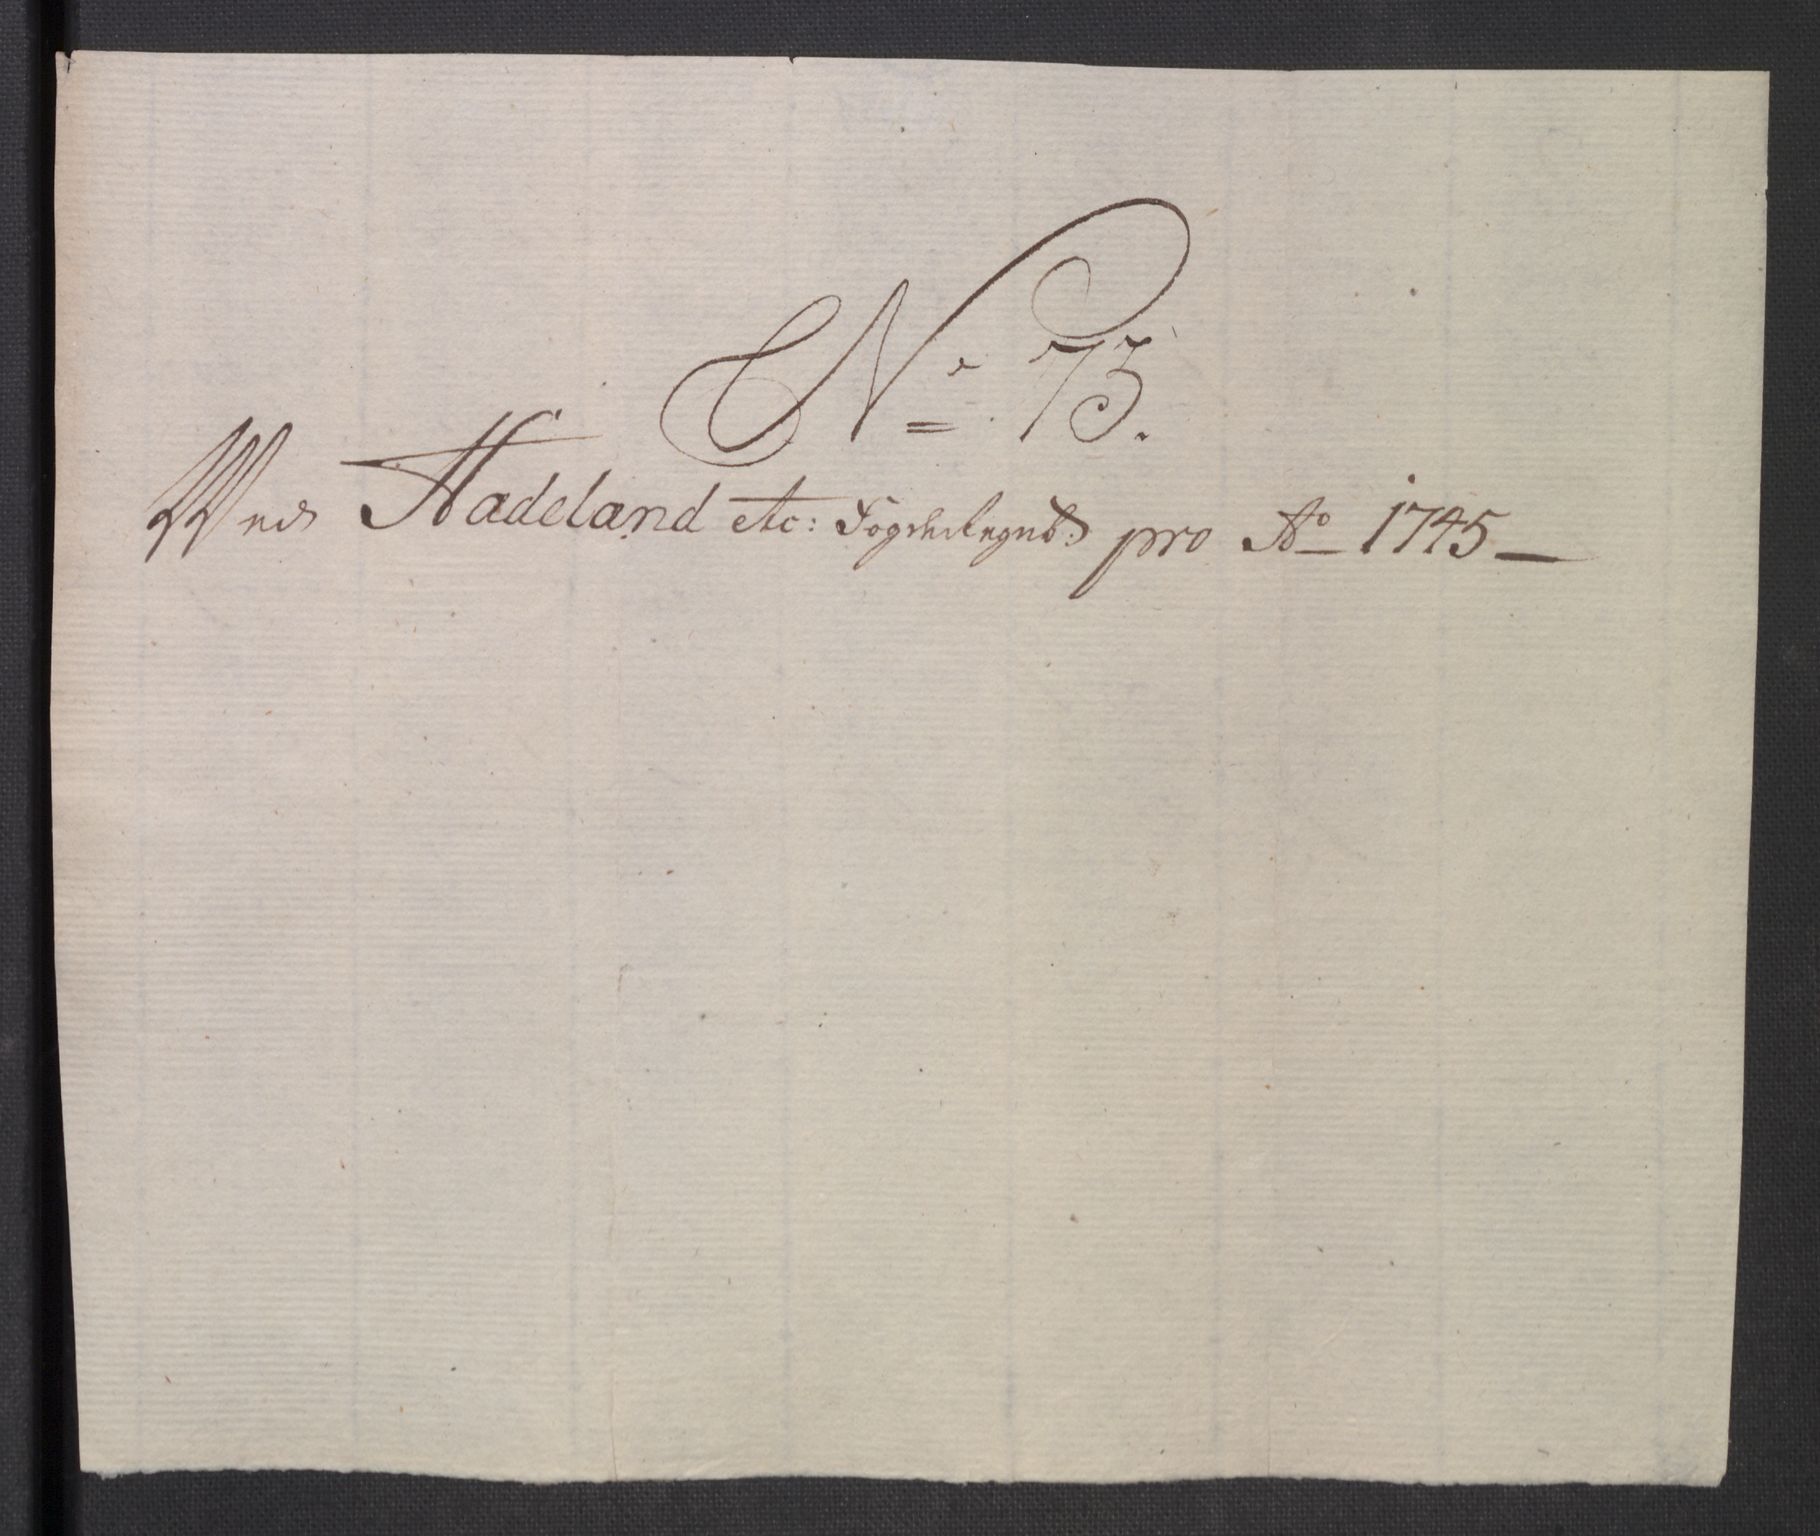 No. 73.
Wed Hadeland etc: Fogderiegnb: pro Ao 1745